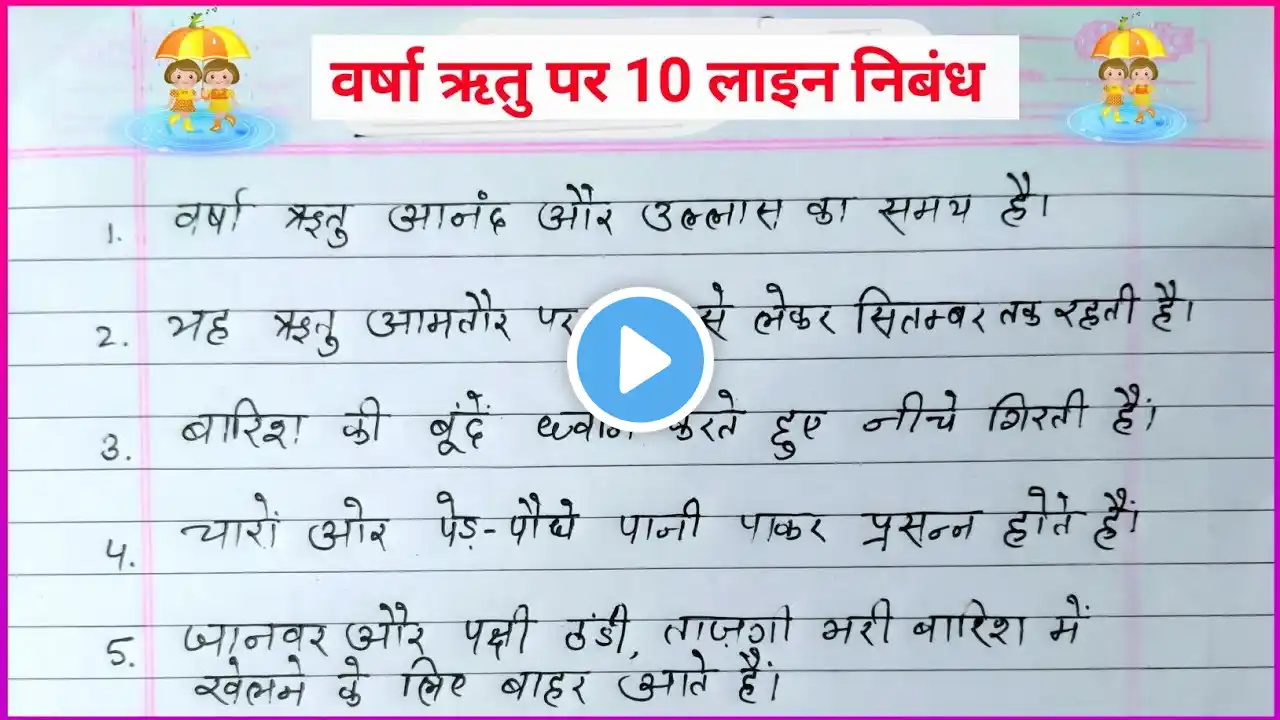 वर्षा ऋतु पर 10 लाइन निबंध
1. वर्षा ऋतु आनंद और उल्लास का समय है।
2. यह ऋतु आमतौर पर से लेकर सितम्बर तक रहती है।
3. बारिश की बूंदें करते हुए नीचे गिरती हैं।
4. चारों ओर पेड़-पौधे पानी पाकर प्रसन्न होते हैं।
5. जानवर और पक्षी ठंडी, ताज़गी भरी बारिश में
खेलने के लिए बाहर आते हैं।